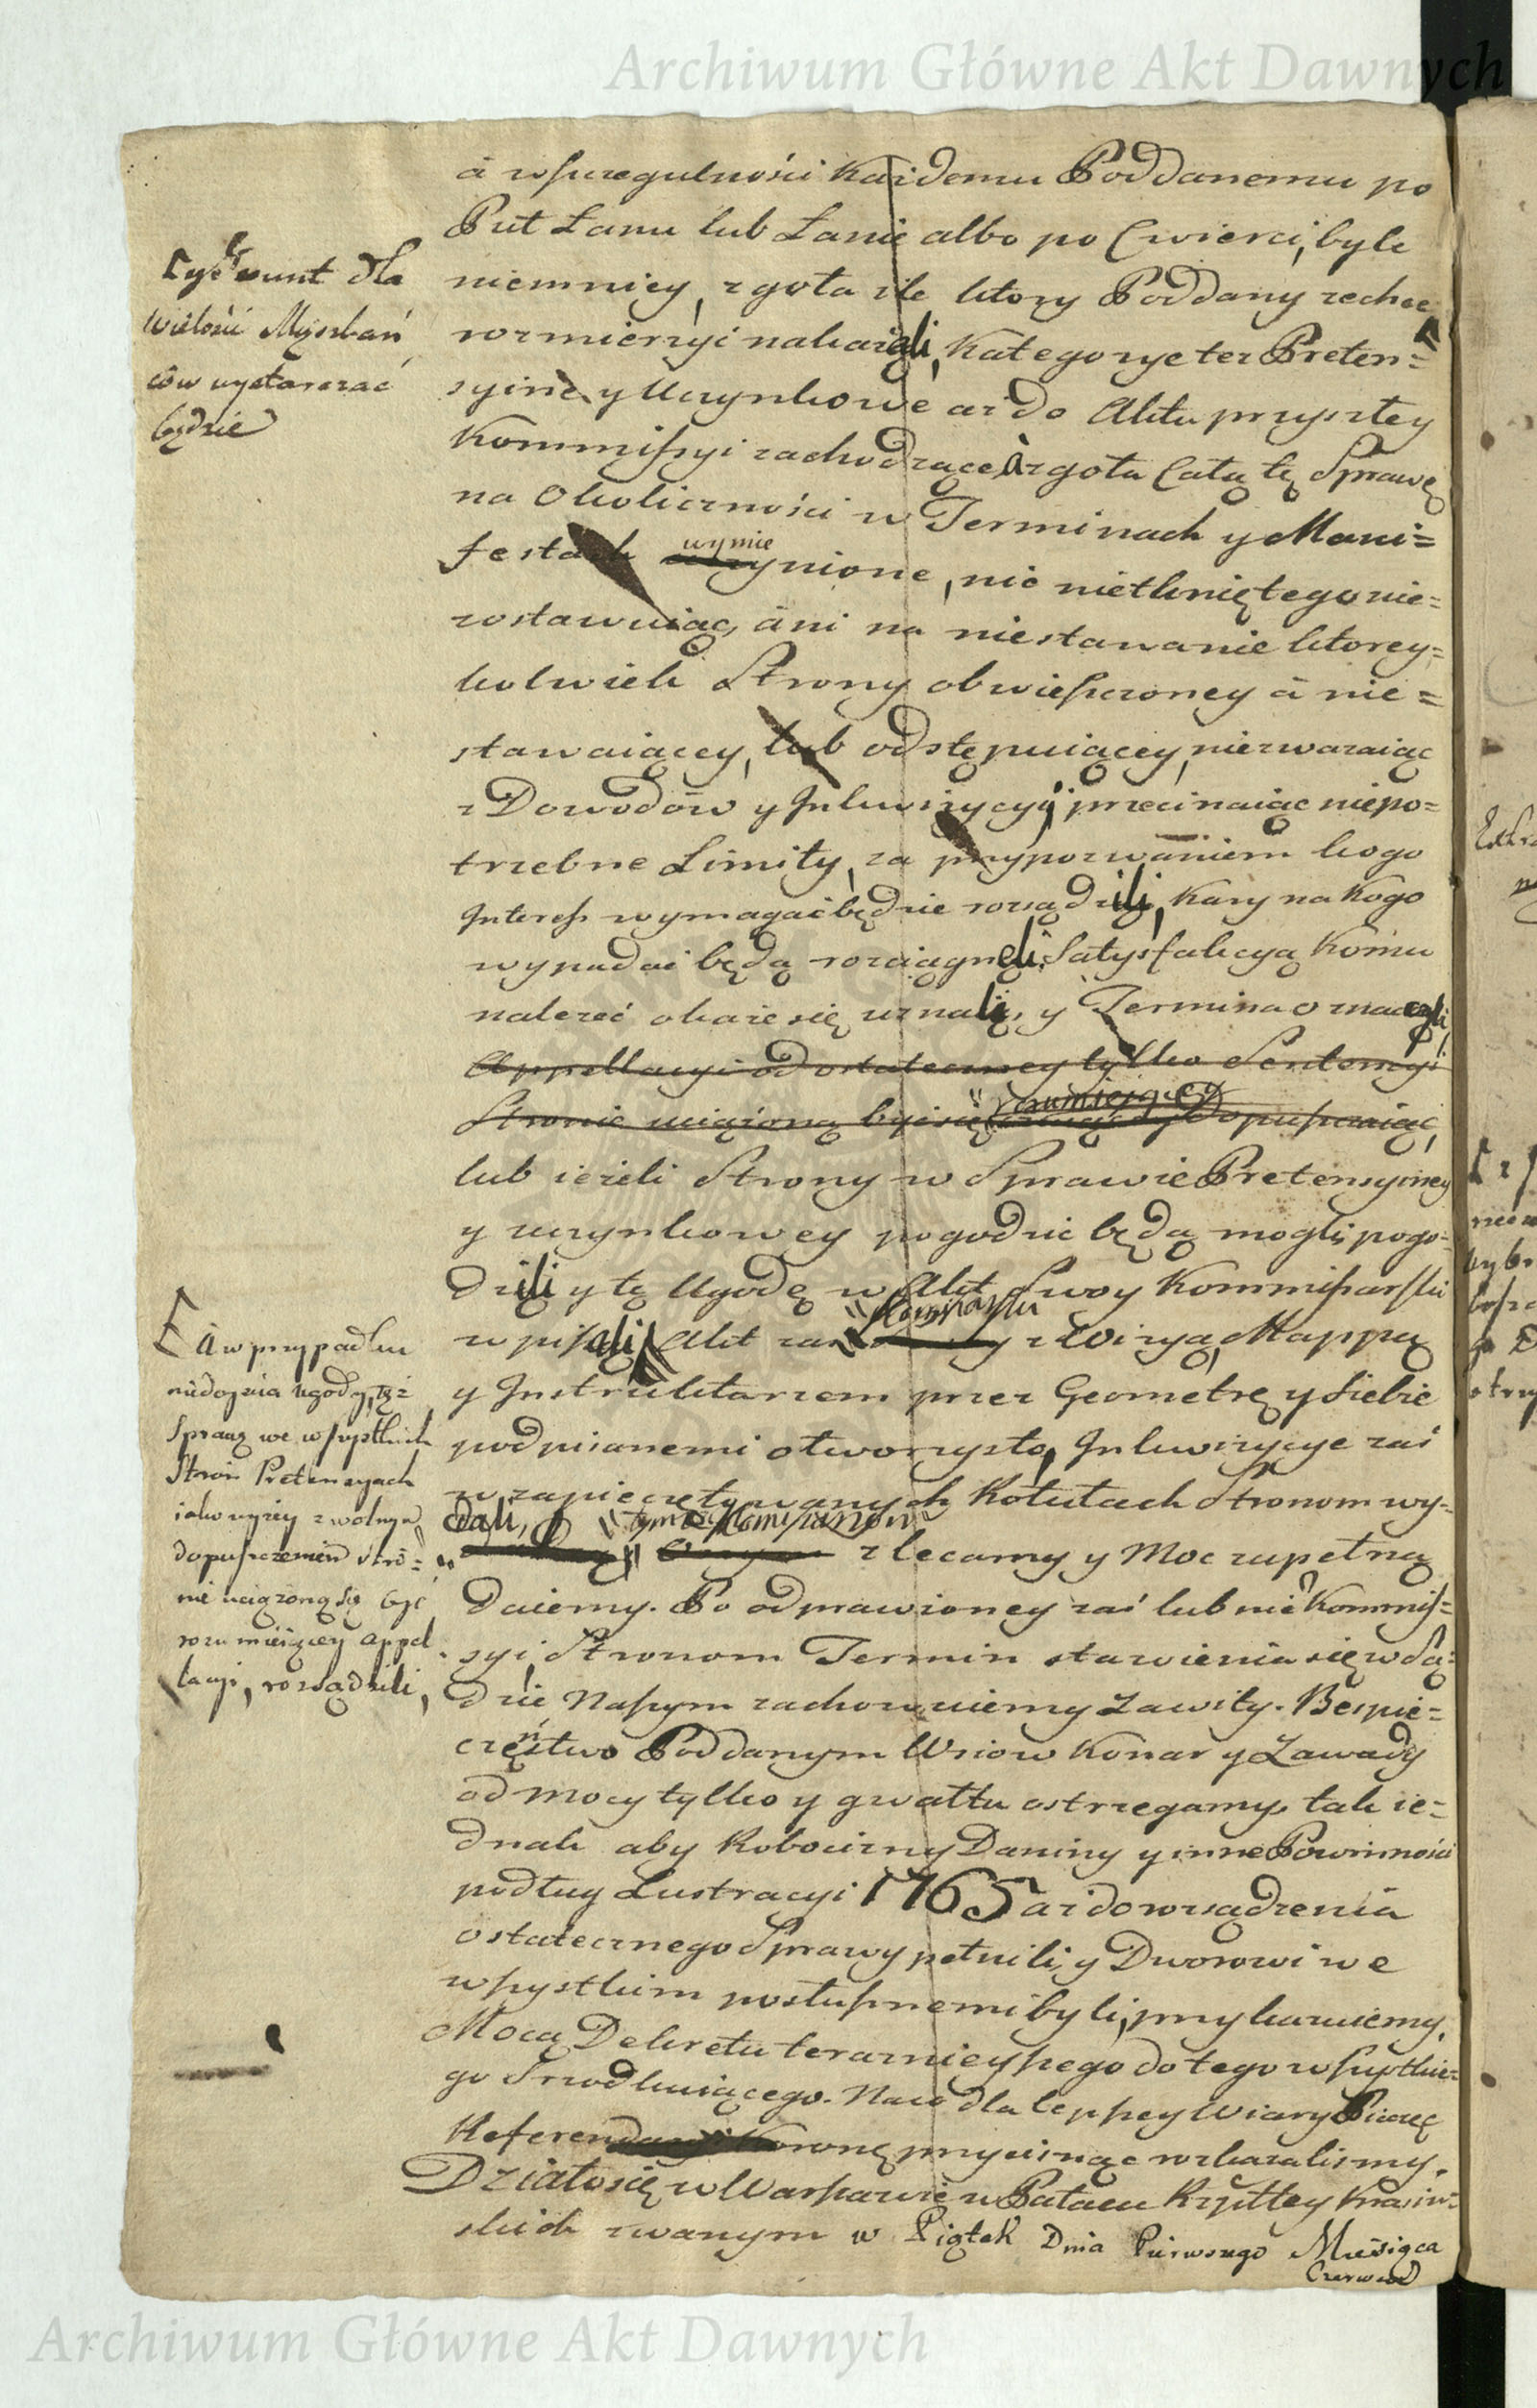 Archiwum Główne Akt Dawnych
a w szczegulności każdemu Poddanemu po
Puł Łanu lub Łanie albo po Cwierci, byle
niemniey, zgoła ile ktory Poddany zechce
rozmierzyć nakazali, Kategorye też Preten=
syine y Uczynkowe aż do Aktu przyszłey
Kommissyi zachodzące à zgoła Całą tę Sprawę
na Okoliczności w Terminach y Mani=
festach wymie
ynione, nic nietkniętego nie=
zostawuiąc, áni na niestawanie ktorey=
kolwiek Strony obwieszczoney á nie=
stawaiącey, lub odstępuiącey, niezważaiąc
z Dowodów y Inkwizycyi przecinaiąc niepo=
trzebne Limity, za przypozwaniem kogo
Interess wymagać będzie rozsądzili, Kary na Kogo
wypadać będą rozciągneli, Satysfakcyą Komu
należeć okaże się uznali, y Termina oznaczyli
Appellacyi od ostateczney tylko Sentencyi
rozumieiącey
Stronie uciążoną bydź się dopuszczaiąc,
lub ieżeli Strony w Sprawie Pretensyiney
y uczynkowey pogodzić będą mogli, pogo=
dzili y tę Ugodę w Akt Swoy Kommissarski
wpisali, Akt zaś Kommissarski z Wizyą, Mappą
y Instruktarzem przez Geometrę y Siebie
podpisanemi otworzysto, Inkwizycye zaś
w zapieczętowanych Rotułach Stronom wy=
dali, tymże Kommissarzom zlecamy y Moc zupełną
daiemy. Po odprawioney zaś lub nie Kommis=
syi, Stronom Termin stawienia się w Są=
dzie Naszym zachowuiemy Zawity. Bespie=
czeństwo Poddanym Wsiow Konar y Zawady
od mocy tylko y gwałtu ostrzegamy, tak ie=
dnak aby Robocizny Daniny y inne Powinności
podług Lustracyi 1765 aż do osądzenia
ostatecznego Sprawy pełnili, y Dworowi we
wszystkim posłusznemi byli, przykazuiemy,
Mocą Dekretu teraznieyszego do tego wszystkie=
go Srzodkuiącego. Na co dla lepszey Wiary Pieczęć
Referendaryi Koronę przycisnąc rozkazalismy.
Działo się w Warszawie w Pałacu Rzpltey Krasiń=
skich zwanym w Piątek Dnia Pierwszego Miesiąca
Czerwca
Grunt dla
Wielości Mieszkań
ców wystarczać
będzie
á w przypadku
niedojścia ugody, tęż
Sprawę we wszystkich
Stron Pretensyach
iako wyżey z wolnym
dopuszczeniem Stro=
nie uciążoną się być
rozumieiącey appel
lacyi, rozsądzili,
Archiwum Główne Akt Dawnych